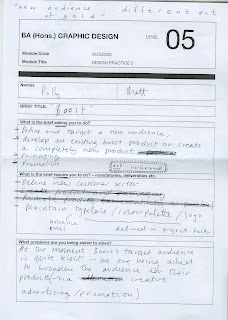 "new audience different pot
of gold"
BA (Hons.) GRAPHIC DESIGN
LEVEL 05
Module Code OUGD203
Module Title DESIGN PRACTICE 2
Names
Polly Brett
BRIEF TITLE: Boost
What is the brief asking you to do?
Define and target a new audience,
develop an existing boost product or create
a completely new product
packaging
Promotion not rebrand
What is the brief require you to do? – mandatories, deliverables etc.
- Define new customer sector
Maintain typeface / colour palette / logo
defined in project pack
What problems are you being asked to solve?
At the moment Boosts target audience
is quite select – we are being asked
to broaden the audience for their
product via creative
advertising / promotion)